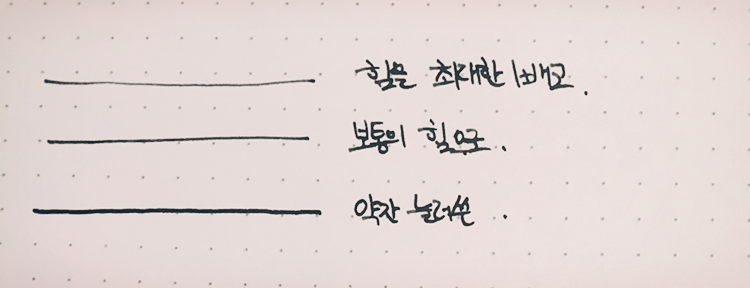 힘을 최대한 빼고.
보통의 힘으로.
약간 눌러쓴.